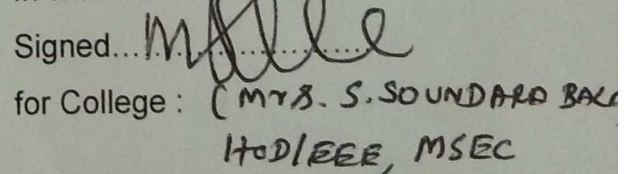 Signed...
for College : (Mrs. S. SOUNDARA
HOD/EEE, MSEC